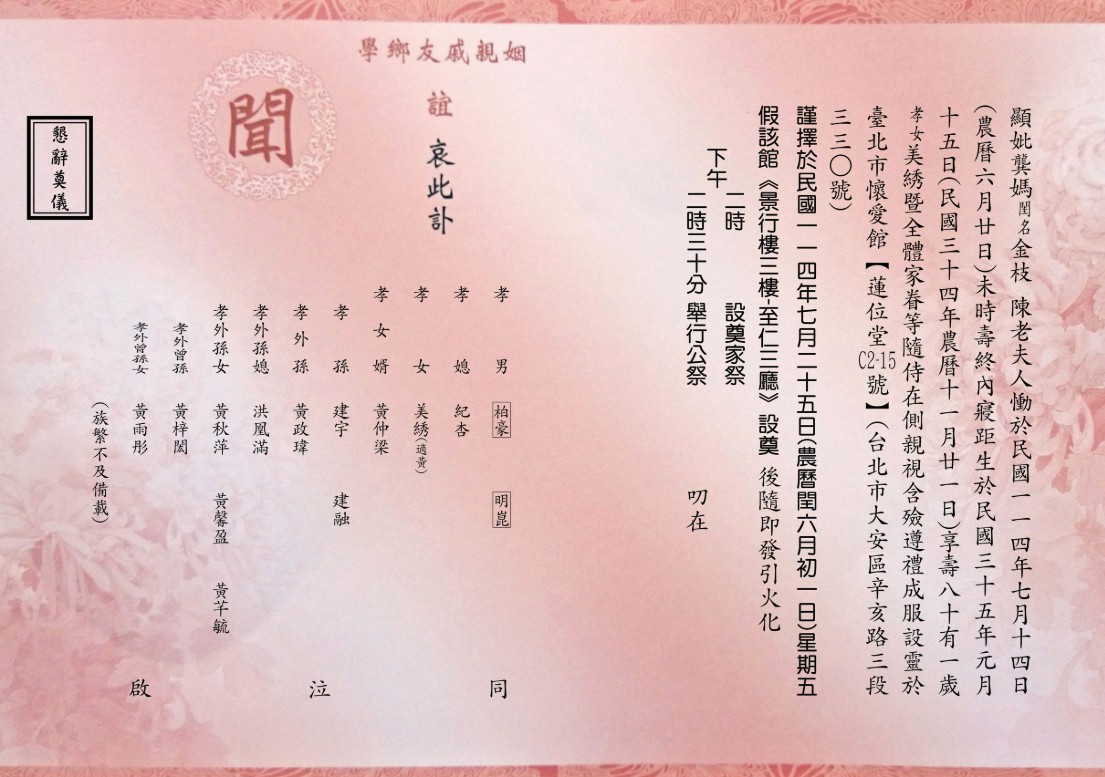 顯妣龔媽閨名金枝 陳老夫人慟於民國一一四年七月十四日
(農曆六月廿日)未時壽終內寢距生於民國三十五年元月
十五日(民國三十四年農曆十一月廿一日)享壽八十有一歲
孝女美綉暨全體家眷等隨侍在側親視含殮遵禮成服設靈於
臺北市懷愛館【蓮位堂C2-15號】(台北市大安區辛亥路三段
三三〇號)
謹擇於民國一一四年七月二十五日(農曆閏六月初一日)星期五
假該館《景行樓三樓-至仁三廳》設奠 後隨即發引火化
下午
一時 設奠家祭
一時三十分 舉行公祭 叨在
姻親戚友鄉學
誼 哀此訃
聞
孝男 柏豪 明崑
孝媳 紀杏
孝女 美綉(適黃)
孝女婿 黃仲梁
孝孫 建宇 建融
孝外孫 黃政瑋
孝外孫媳 洪凰滿
孝外孫女 黃秋萍 黃馨盈 黃芊毓
孝外曾孫 黃梓閎
孝外曾孫女 黃雨彤
(族繁不及備載)
同 泣 啟
懇辭奠儀